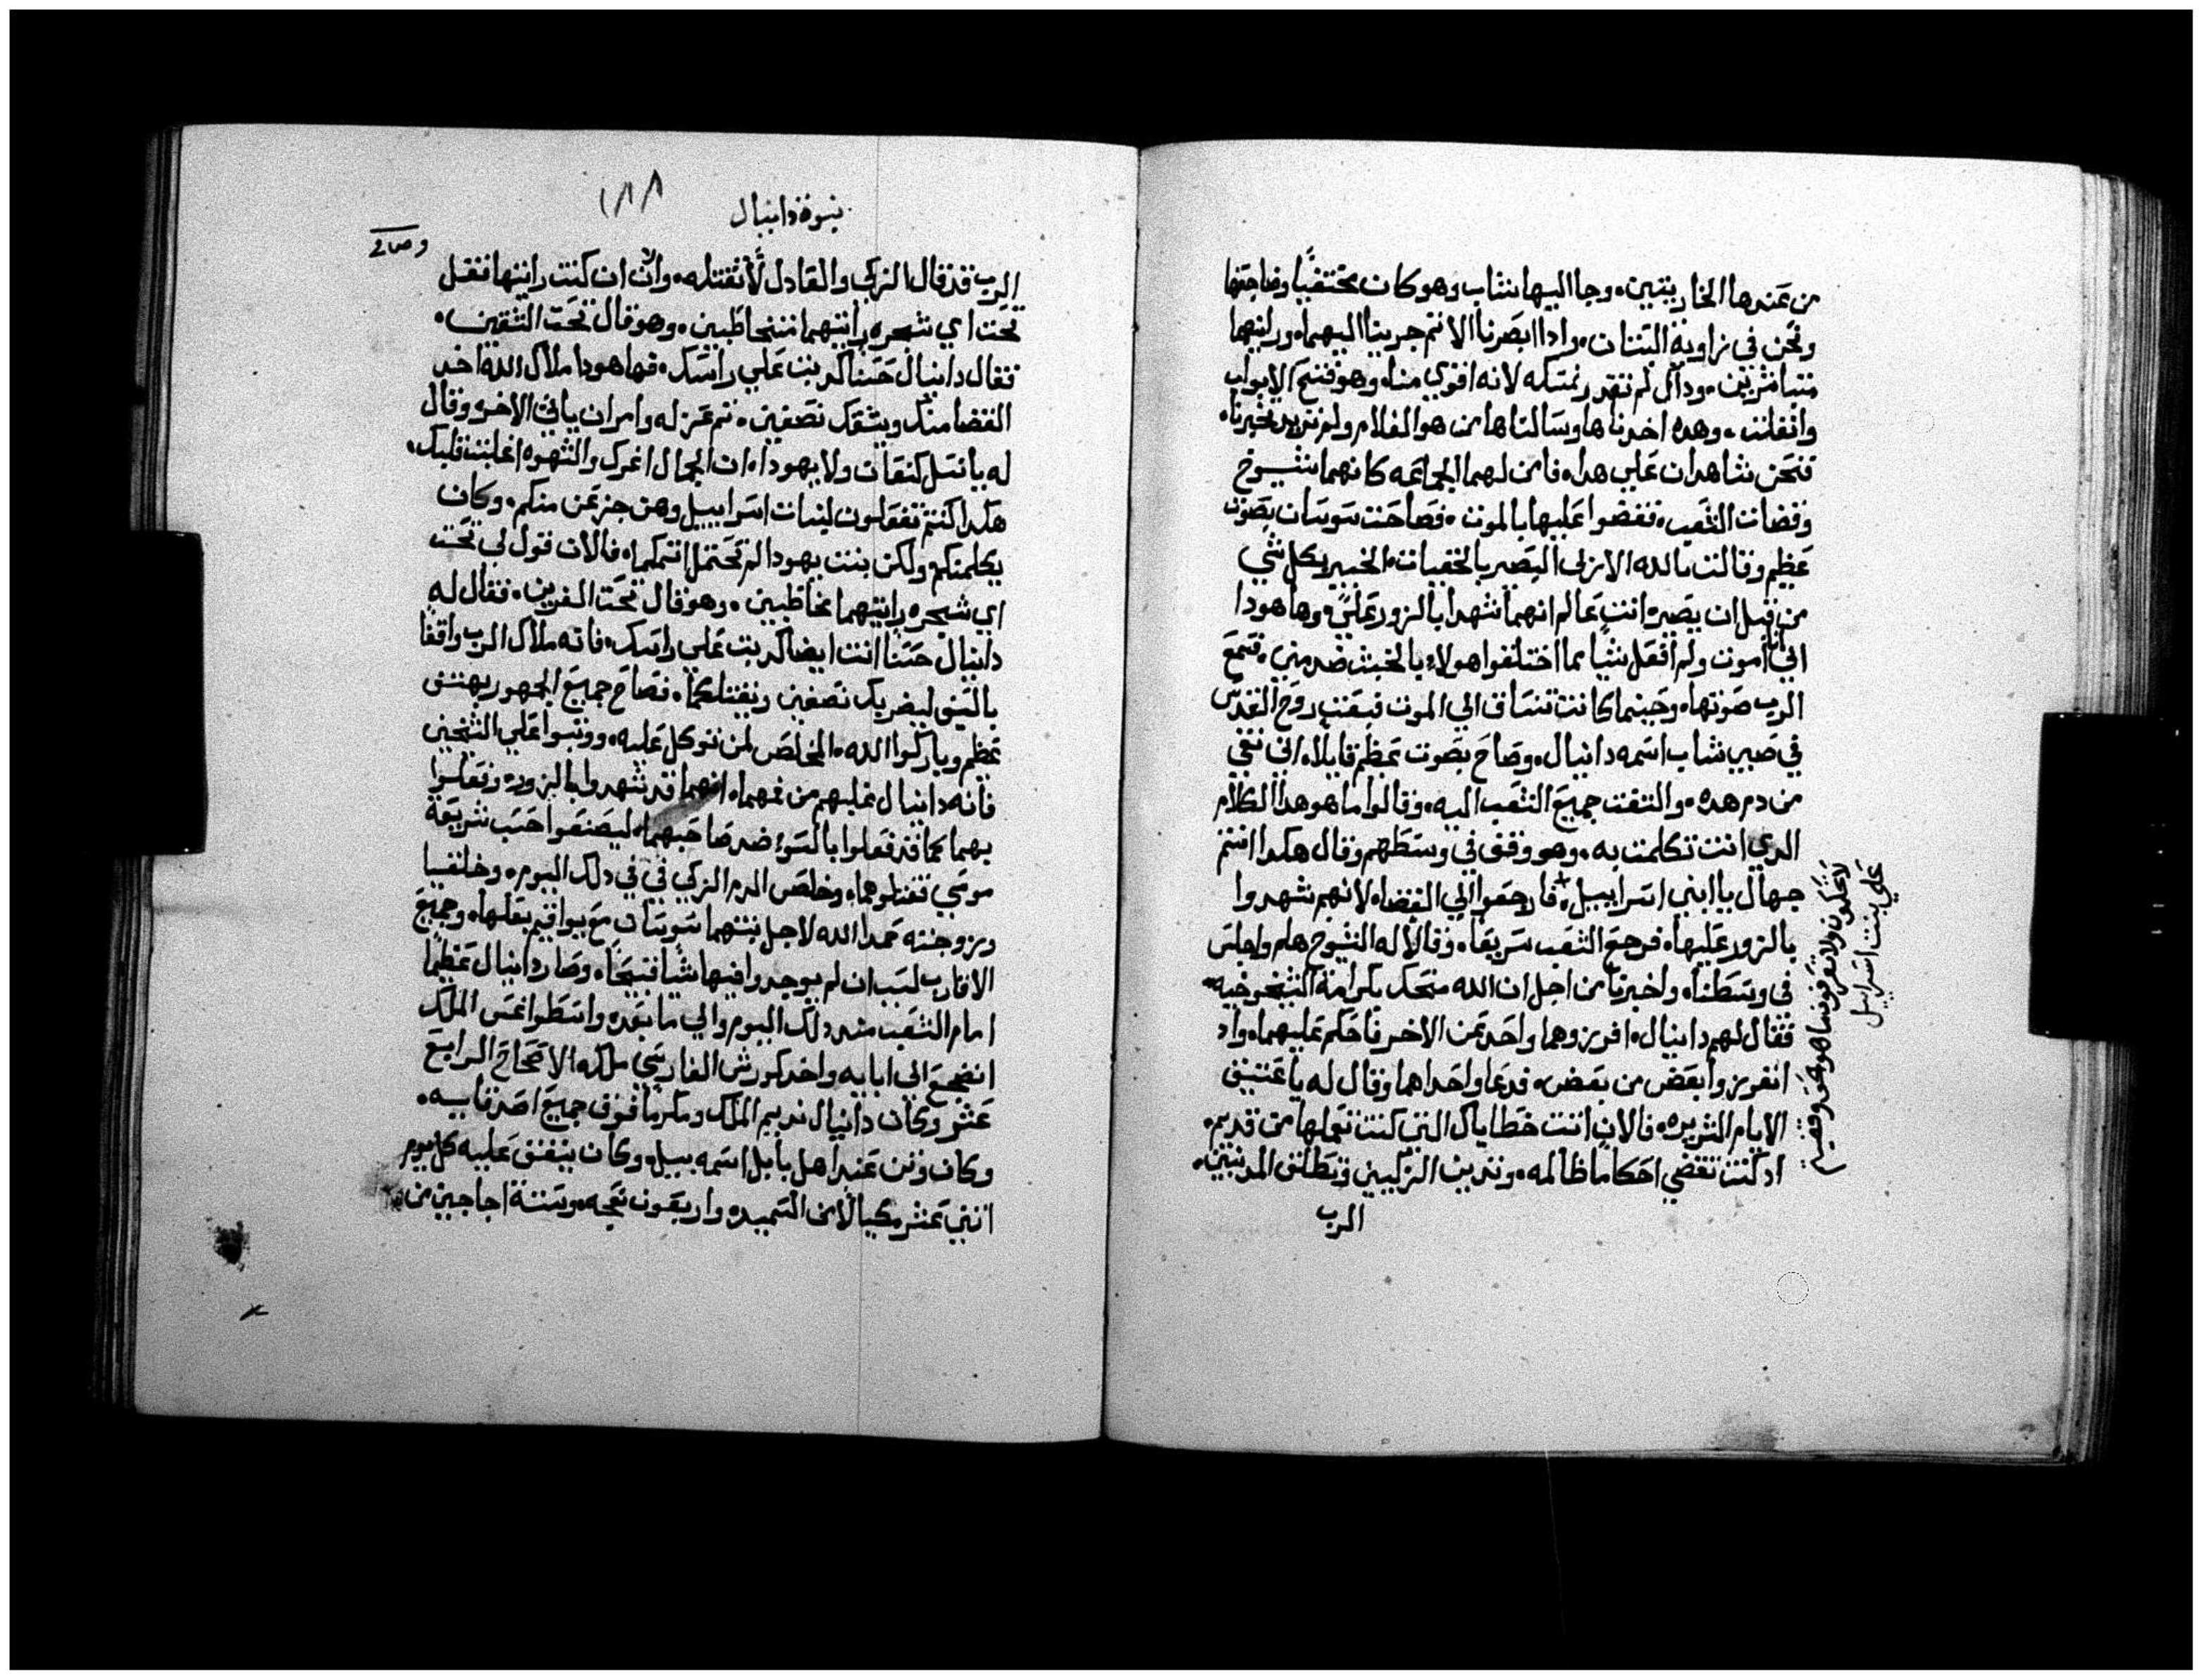 من عندها الجاريتين. وجا اليها شاب وهو كان مختفيًا وضاجعها
ونحن في زاوية البستان. وادا ابصرنا الاتم جرينا اليهما. وراينهما
متباشرين. وداك لم نقدر نمسكه لانه اقوي منا. وهو فتح الابواب
وانفلت. وهده اخدناها وسالناها من هو الغلام ولم تريد تخبرنا.
فنحن شاهدان علي هدا. فامن لهما الجماعه كانهما شيوخ
وقضات الشعب. فقضوا عليها بالموت. فصاحت سوسان بصوت
عظيم وقالت يا الله الازلي البصير بالخفيات الخبير بكل شي
من قبل ان يصير. انت عالم انهما شهدا بالزور علي. وها هودا
اني انا اموت ولم افعل شيا مما اختلفوا هولاء بالخبث ضد مني. فسمع
الرب صوتها. وحينما كانت تنساق الي الموت فبعث روح القدس
في صبي شاب اسمه دانيال. وصاح بصوت عظم قايلا. اني نقي
من دم هده. والتفت جميع الشعب اليه. وقالوا ما هو هدا الكلام
الدي انت تكلمت به. وهو وقف في وسطهم وقال هكدا انتم
جهال يا ابني اسراييل. فارجعوا الي القضا. لانهم شهدوا
لا تحكمون ولا تعرفون ما هو حق وقضيتم
علي بنت اسراييل
بالزور عليها. فرجع الشعب سريعا. وقالا له الشيوخ هلم واجلس
في وسطنا. واخبرنا من اجل ان الله منحك بكرامة الشيخوخيه
فقال لهم دانيال. افرزوهما واحد عن الاخر فاحكم عليهما. واد
انفرزوا بعض من بعض. فدعا واحداهما وقال له يا عتيق
الايام الشريره. فالان اتت خطاياك التي كنت تعملها من قديم.
ادكنت تقضي احكاما ظالمه. وتدين الزكيين وتطلق المدنبين.
الرب
نبوة دانيال
١٨٨
الرب قد قال الزكي والعادل لا تقتله. والان ان كنت راينها فقل
تحت اي شجره رايتهما متخاطبين. وهو قال تحت
فقال دانيال حسنا كدبت علي راسك. فها هودا ملاك الله اخد
القضا منك ويشقك نصفين. تم عزله وامر ان ياتي الاخر. وقال
له يا نسل كنعان ولا يهودا. ان الجمال اغرك والشهوه اغلبت قلبك.
هكدا كنتم تفعلون لبنات اسراييل وهن جزعن منكم. وكان
يكلمنكم ولكن بنت يهودا لم تحتمل اتمكما. فالان قول لي تحت
اي شجره رايتهما مخاطبين. وهو قال تحت. فقال له
دانيال حسنا انت ايضا كدبت علي راسك. فانه ملاك الرب واقفا
بالسيف ليضربك نصفين ويقتلكما. فصاح جميع الجمهور بهتف
عظم وباركوا الله. المخلص لمن توكل عليه. ووتبوا علي الشيخين
فانه دانيال غلبهم من فمهما. انهما قد شهدوا بالزور. وفعلوا
بهما كما قد فعلوا بالسوء ضد صاحبهما. ليصنعوا حسب شريعة
موسي فقتلوهما. وخلص الدم الزكي في دلك اليوم. وخلفيا
وزوجته حمدا الله لاجل بنتهما سوسان مع يواقيم بعلها. وجميع
الاقارب لسبب ان لم يوجدوا فيها شيا قبيحا. وصار دانيال عظيما
امام الشعب مند دلك اليوم والي ما بعد. واسطواغس الملك
انضجع الي ابايه واخد كورش الفارسي ملكه الاصحاح الرابع
عشر وكان دانيال نديم الملك ومكرما فوق جميع اصدقاييه.
وكان وتن عند اهل بابل اسمه بيل. وكان ينفق عليه كل يوم
اتني عشر مكيالا من السميد. واربعون نعجه. وستة اجاجين من